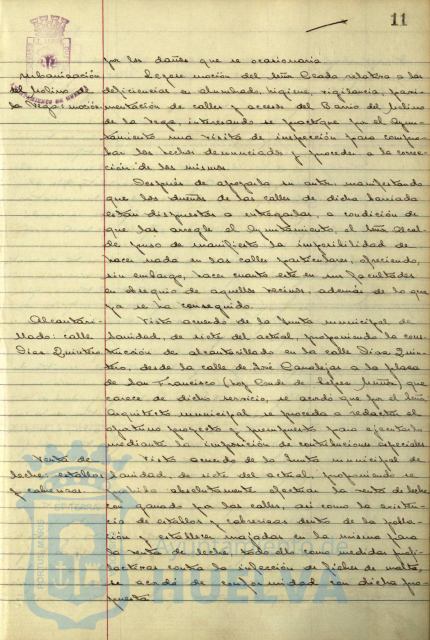 11
por los daños que se ocasionaria
Urbanización
del Molino
la Vega: moción
Leyose moción del Señor Prado relativa a las
deficiencias en alumbrado, higiene, vigilancia, pavi-
mentación de calles y accesos del Barrio del Molino
de la Vega, interesando se practique por el Ayun-
tamiento una visita de inspección para compro-
bar los hechos denunciados y proceder a la correc-
ción de los mismos.
Despues de apoyarla su autor, manifestando
que los dueños de las calles de dicha barriada
están dispuestos a entregarlas, a condición de
que las arregle el Ayuntamiento, el Señor Alcal-
de puso de manifiesto la imposibilidad de
hacer nada en las calles particulares, ofreciendo,
sin embargo, hacer cuanto esté en sus facultades
en obsequio de aquellos vecinos, además de lo que
ya se ha conseguido.
Alcantari-
llado: calle
Diaz Quintero
Visto acuerdo de la Junta municipal de
Sanidad, de siete del actual, proponiendo la cons-
trucción de alcantarillado en la calle Diaz Quin-
tero, desde la calle de José Canalejas a la plaza
de San Francisco (hoy Conde de Lopez Muñoz) que
carece de dicho servicio, se acordó que por el Señor
Arquitecto municipal se proceda a redactar el
oportuno proyecto y presupuesto para ejecutarlo
mediante la imposición de contribuciones especiales
Venta de
leche: establos
y cabrerizas
Visto acuerdo de la Junta municipal de
Sanidad, de siete del actual, proponiendo se
prohiba absolutamente efectuar la venta de leche
con ganado por las calles, asi como la existen-
cia de establos y cabrerizas dentro de la pobla-
ción y establecer majadas en la misma para
la venta de leche, todo ello como medidas profi-
lacticas contra la infección de fiebre de malta,
se acordó de conformidad con dicha pro-
puesta
Ayuntamiento de
HUELVA